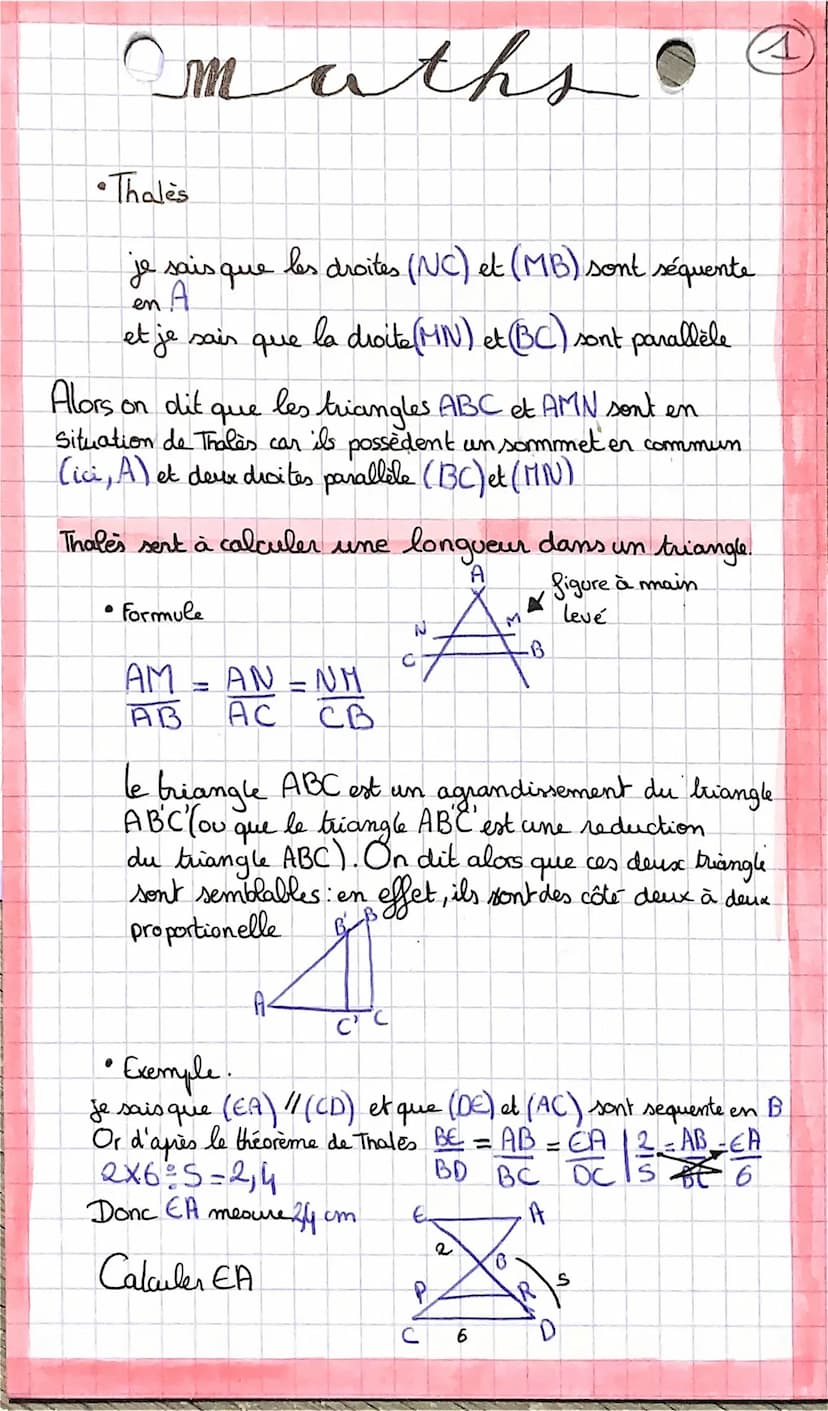 maths
1
• Thalès
je sais que les droites (NC) et (MB) sont séquente
en A
et je sais que la droite (MN) et (BC) sont parallèle
Alors on dit que les triangles ABC et AMN sont en
situation de Thalès car ils possèdent un sommmet en commun
(ici, A) et deux droites parallèle (BC) et (MN)
Thalès sert à calculer une longueur dans un triangle.
A
figure à main
levé
• Formule
N
M
C
B
AM = AN = NM
AB AC CB
le triangle ABC est un agrandissement du triangle
AB'C' (ou que le triangle AB'C' est une reduction
du triangle ABC). On dit alors que ces deux triangle
sont semblables : en effet, ils sont des côté deux à deux
proportionelle
B' B
A
C' C
• Exemple.
je sais que (EA) // (CD) et que (DE) et (AC) sont sequente en B
Or d'après le théorème de Thalès BE = AB = EA | 2 = AB = EA
BD BC DC | 5 BC 6
2x6÷5=2,4
Donc EA mesure 2,4 cm
E A
2
B
Calculer EA
5
P R
C 6 D